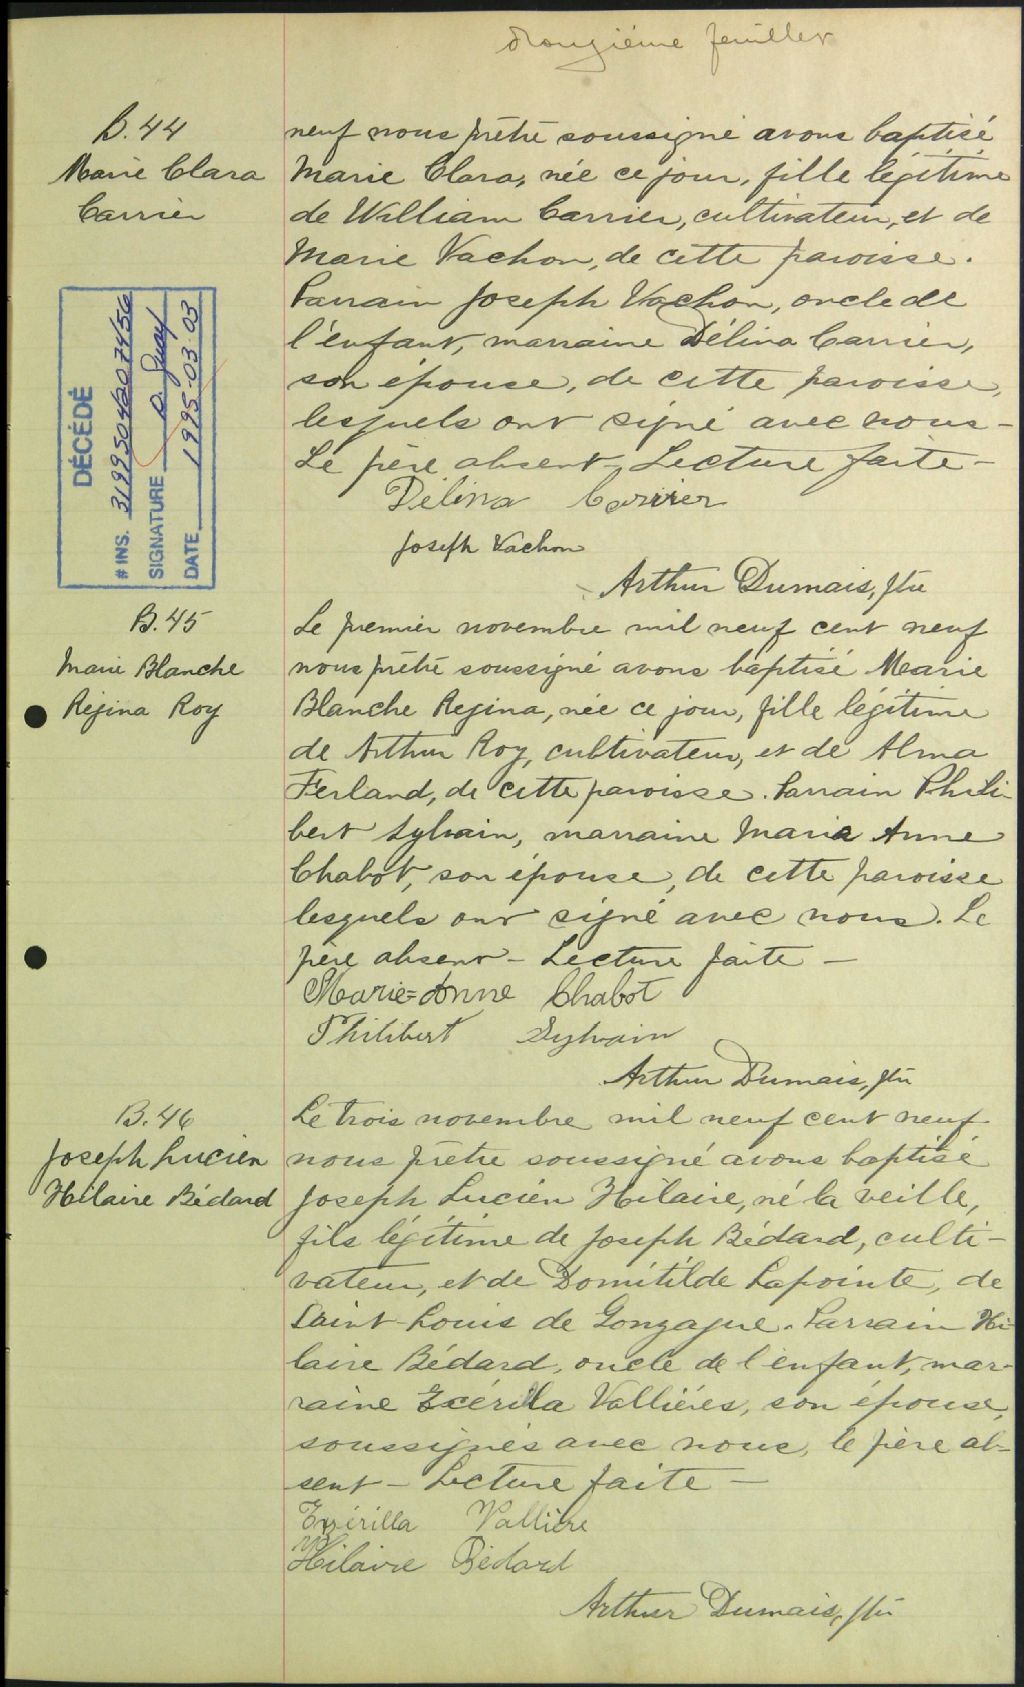 feuillet
B.44
Marie Clara
Carrier
neuf nous prêtre soussigné avons baptisé
Marie Clara, née ce jour, fille légitime
de William Carrier, cultivateur, et de
Marie Vachon, de cette paroisse.
Parrain Joseph Vachon, oncle de
l'enfant, marraine Délina Carrier,
son épouse, de cette paroisse,
lesquels ont signé avec nous-
Le père absent - Lecture faite -
Délina Carrier
Joseph Vachon
Arthur Dumais, ptre
DÉCÉDÉ
# INS. 3199504207456
SIGNATURE
DATE 1995-03-03
B.45
Marie Blanche
Régina Roy
Le premier novembre mil neuf cent neuf
nous prêtre soussigné avons baptisé Marie
Blanche Regina, née ce jour, fille légitime
de Arthur Roy, cultivateur, et de Alma
Ferland, de cette paroisse. Parrain Phili-
bert Sylvain, marraine Marie Anne
Chabot, son épouse, de cette paroisse
lesquels ont signé avec nous. Le
père absent - Lecture faite -
Marie-Anne Chabot
Philibert Sylvain
Arthur Dumais, ptre
B.46
Joseph Lucien
Hilaire Bédard
Le trois novembre mil neuf cent neuf
nous prêtre soussigné avons baptisé
Joseph Lucien Hilaire, né la veille,
fils légitime de Joseph Bédard, culti-
vateur, et de Domitilde Lapointe, de
Saint-Louis de Gonzague. Parrain Hi-
laire Bédard, oncle de l'enfant, mar-
raine Exérilla Vallières, son épouse,
soussignés avec nous, le père ab-
sent - Lecture faite -
Exérilla Vallière
Hilaire Bédard
Arthur Dumais, ptre